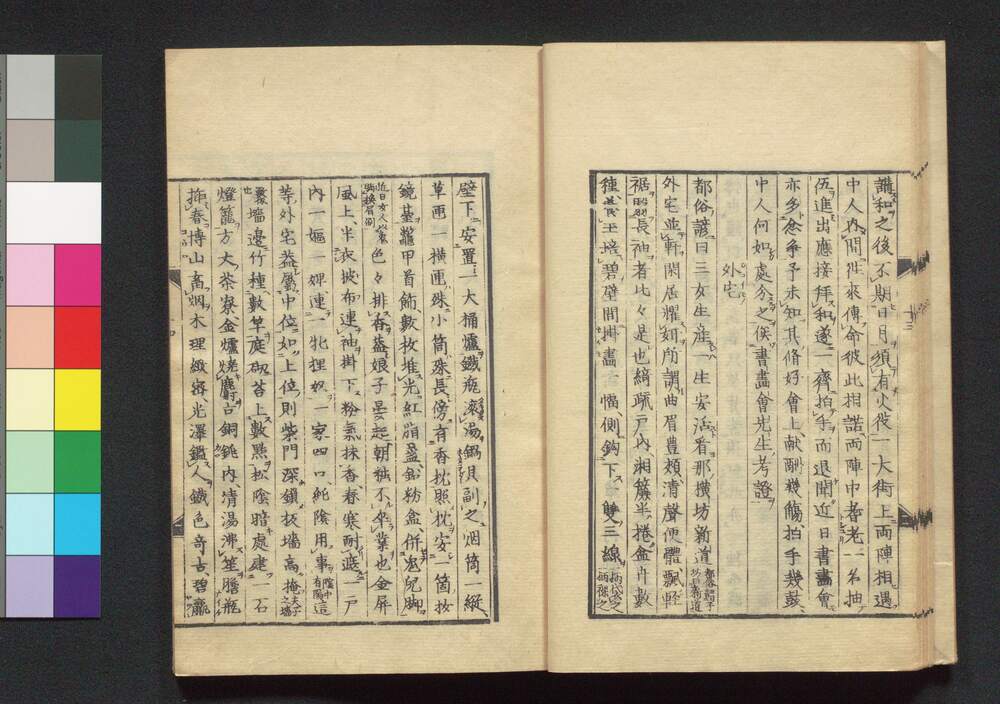 講和之後不期日月須有火役一大街上両陣相遇
中人内間往來傳命彼此相諾両陣中耆老一名抽
伍進出應接拜和遂一齊拍手而退聞近日書畫會
亦多念争予未知其脩好會上献酬幾觴拍手幾鼓
中人何如處分之俟書畫會先生考證
外宅
都俗諺曰三女生産一生安活看那横坊新道
外宅並軒閑居耀妍所謂曲眉豊頬清聲便體飄輕
裾翳長袖者比々是也綺疏戸内湘簾半捲盆卉數
種養玉培碧壁間掛畫一幅側鈎下雙三線
壁下安置一大桶爐鐵瓶滾湯鍋具副之烟筒一縦
草匣一横匣殊小筒殊長傍有香枕照枕安一箇妝
鏡䑓鼈甲首飾數枚堆光紅脂盝鉛粉盒併宠兒脚
色々排香盝娘子晏起朝粧不卒業也金屏
風上半衣披布連袖掛下粉氣抹香春寒耐減一戸
内一嫗一婢連一牝狸奴一家四口純陰用事
等外宅益屬中位如上位則柴門深鎖板墻高掩
聚墻邊竹種數竿庭砌苔上數點松陰暗處建一石
燈籠方大茶寮金爐焼麝古銅銚内清湯沸笙膽瓶
挿春博山畜烟木理緻密光澤鑑人鐵色奇古碧龍